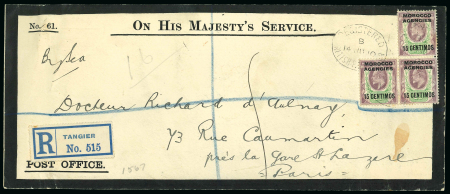 No. 61.
ON HIS MAJESTY'S SERVICE.
By Sea
REGISTERED
B
MOROCCO AGENCIES
15 CENTIMOS
MOROCCO AGENCIES
15 CENTIMOS
MOROCCO AGENCIES
15 CENTIMOS
Docteur Richard d'Aulnay
R TANGIER
No. 515
73 Rue Caumartin
près la Gare St Lazare
Paris
POST OFFICE.
1567